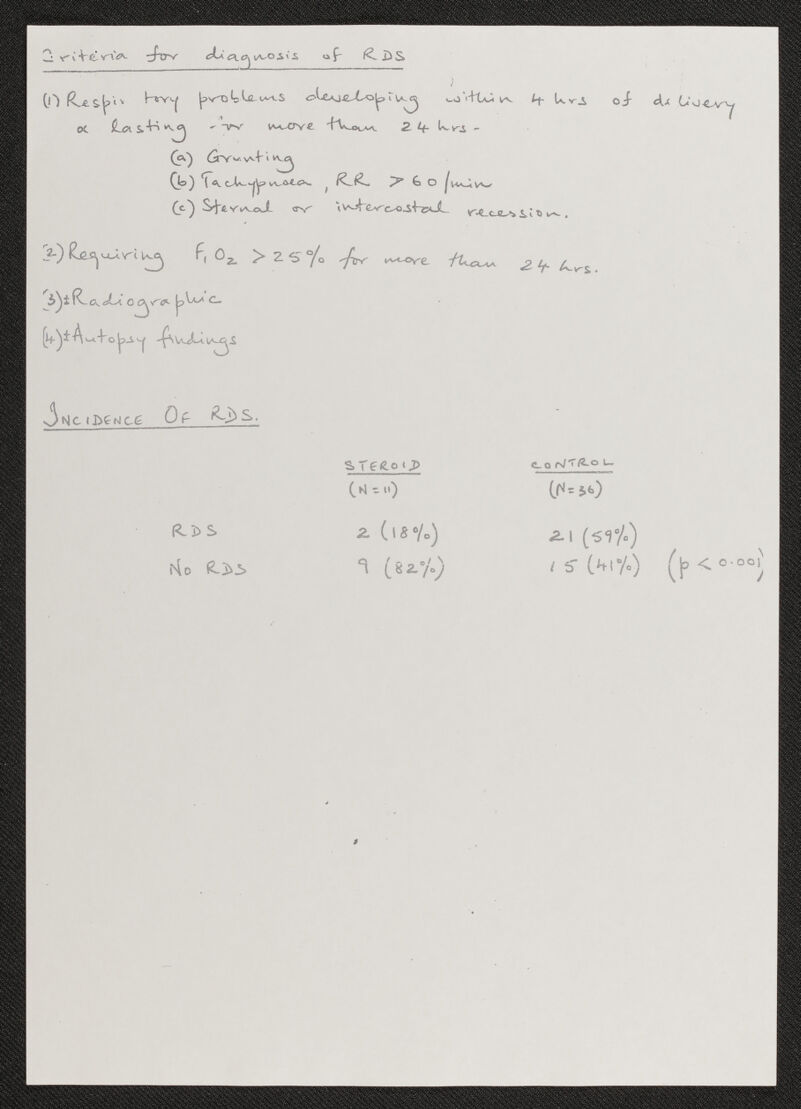 Criteria for diagnosis of RDS
(1) Respir tory problems developing within 4 hrs of delivery
& lasting for more than 24 hrs -
(a) Grunting
(b) Tachypnoea, RR > 60/min
(c) Sternal or intercostal recession.
(2) Requiring F, O2 > 25% for more than 24 hrs.
(3) ± Radiographic
(4) ± Autopsy findings
INCIDENCE OF RDS.
STEROID CONTROL
(N = 11) (N = 36)
RDS 2 (18%) 21 (59%)
No RDS 9 (82%) 15 (41%) (p < 0.001)